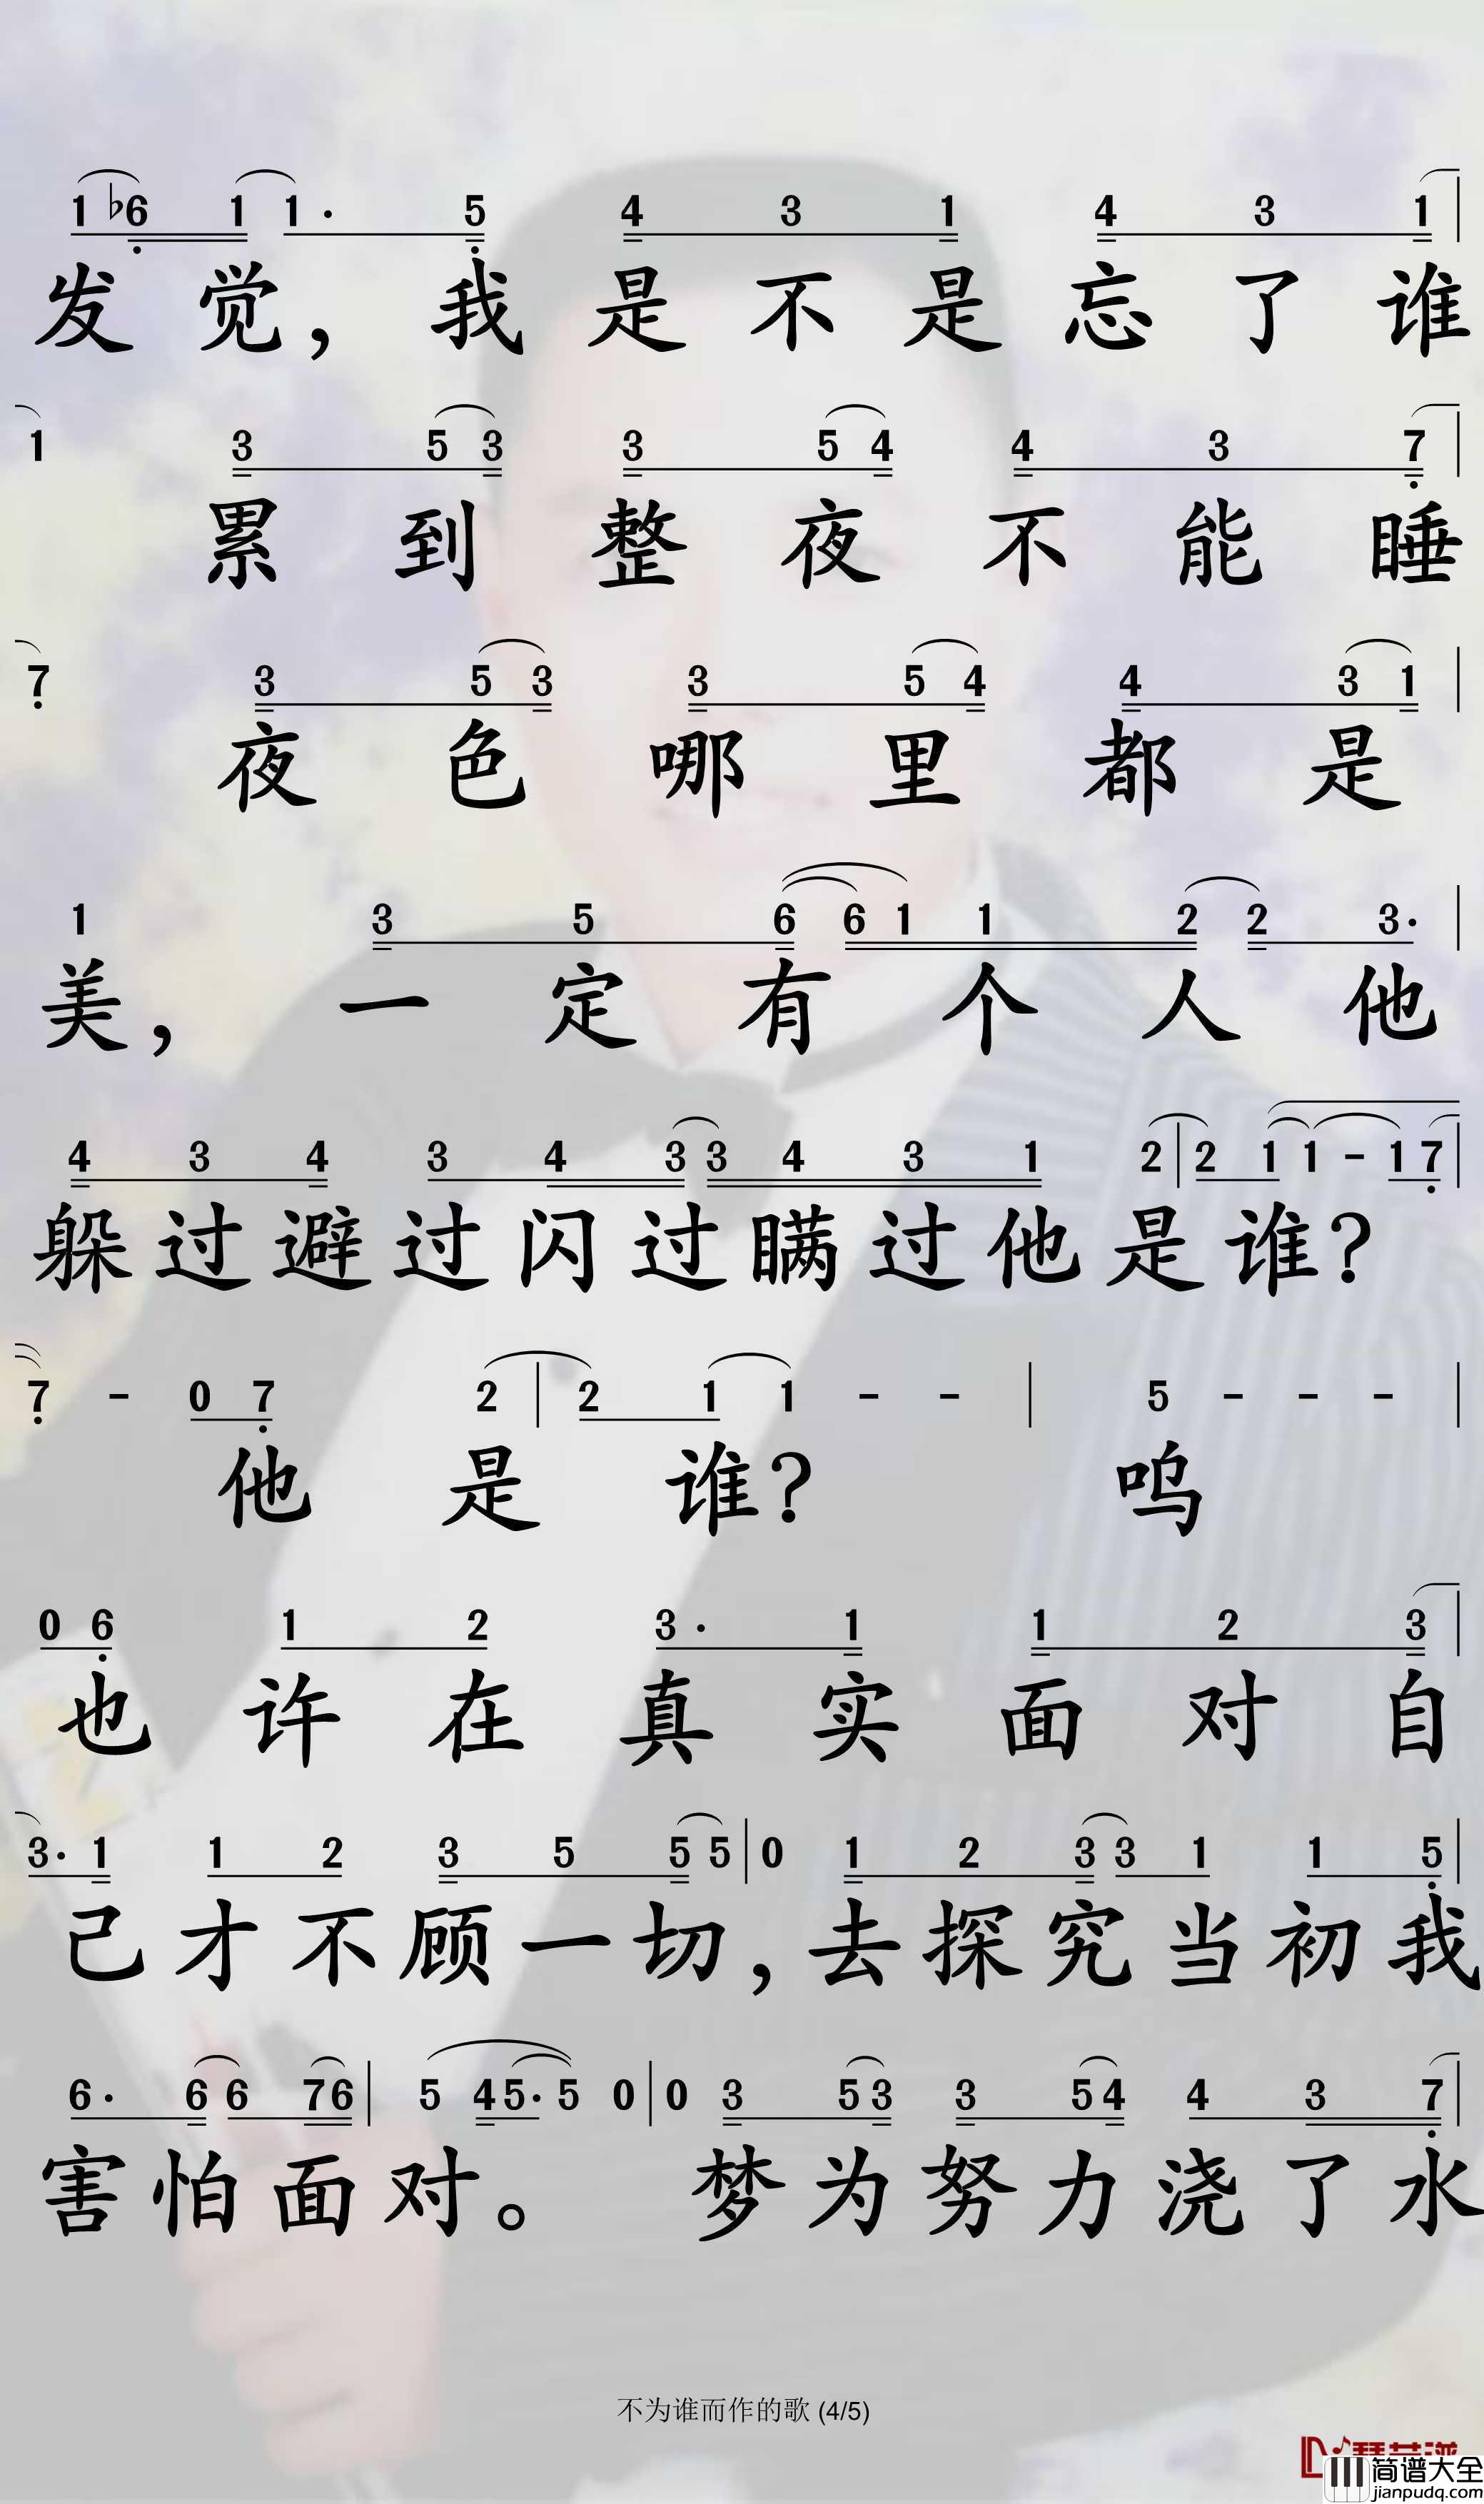 1 ♭6 1 1· 5 4 3 1 4 3 1
发觉，我是不是忘了谁
1 3 5 3 3 5 4 4 3 7
累到整夜不能睡
7 3 5 3 3 5 4 4 3 1
夜色哪里都是
1 3 5 6 6 1 1 2 2 3·
美，一定有个人他
4 3 4 3 4 3 3 4 3 1 2 | 2 1 1 - 1 7
躲过避过闪过瞒过他是谁？
7 - 0 7 2 | 2 1 1 - - | 5 - - -
他是谁？呜
0 6 1 2 3· 1 1 2 3
也许在真实面对自
3· 1 1 2 3 5 5 5 | 0 1 2 3 3 1 1 5
己才不顾一切，去探究当初我
6· 6 6 7 6 | 5 4 5· 5 0 | 0 3 5 3 3 5 4 4 3 7
害怕面对。梦为努力浇了水
不为谁而作的歌 (4/5)
简谱大全
jianpudq.com